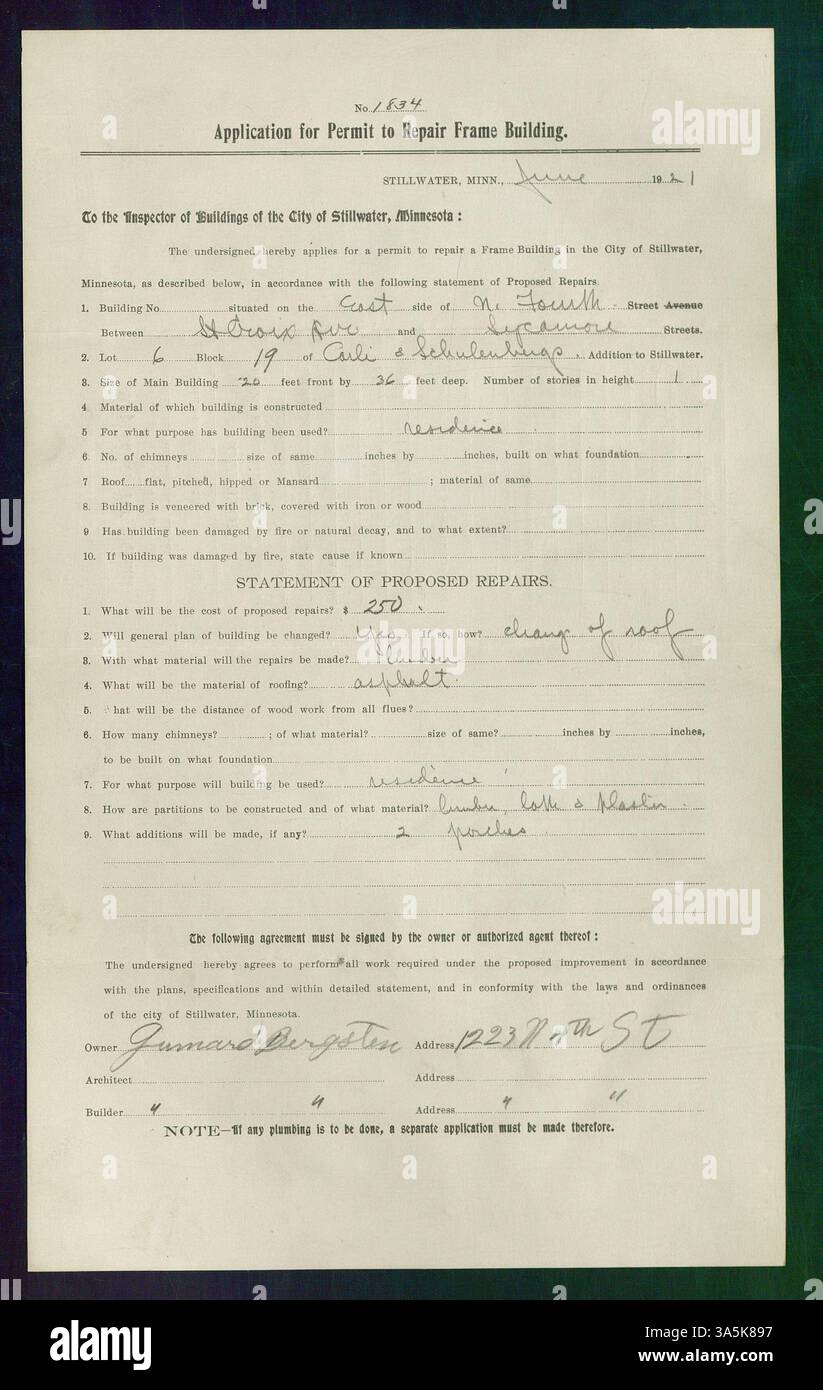 No. 1834
Application for Permit to Repair Frame Building.
STILLWATER, MINN., June 1921
To the Inspector of Buildings of the City of Stillwater, Minnesota:
The undersigned hereby applies for a permit to repair a Frame Building in the City of Stillwater,
Minnesota, as described below, in accordance with the following statement of Proposed Repairs.
1. Building No. situated on the East side of N. Fourth Street Avenue
Between St Croix Ave and Sycamore Streets.
2. Lot 6 Block 19 of Carli & Schulenburgs, Addition to Stillwater.
3. Size of Main Building 20 feet front by 36 feet deep. Number of stories in height 1
4 Material of which building is constructed
5 For what purpose has building been used? residence
6 No. of chimneys size of same inches by inches, built on what foundation
7 Roof flat, pitched, hipped or Mansard ; material of same
8. Building is veneered with brick, covered with iron or wood
9 Has building been damaged by fire or natural decay, and to what extent?
10. If building was damaged by fire, state cause if known
STATEMENT OF PROPOSED REPAIRS.
1. What will be the cost of proposed repairs? $ 250.
2. Will general plan of building be changed? Yes. If so, how? change of roof
3. With what material will the repairs be made? lumber
4. What will be the material of roofing? asphalt
5. hat will be the distance of wood work from all flues?
6. How many chimneys? ; of what material? size of same? inches by inches,
to be built on what foundation
7. For what purpose will building be used? residence
8. How are partitions to be constructed and of what material? lumber, lath & plaster
9. What additions will be made, if any? 2 porches
The following agreement must be signed by the owner or authorized agent thereof:
The undersigned hereby agrees to perform all work required under the proposed improvement in accordance
with the plans, specifications and within detailed statement, and in conformity with the laws and ordinances
of the city of Stillwater, Minnesota.
Owner Bergsten Address 1223 N 4th St
Architect Address
Builder " " Address " "
NOTE—If any plumbing is to be done, a separate application must be made therefore.
alamy
alamy
alamy
alamy
alamy
Image ID: 3A5K897
www.alamy.com